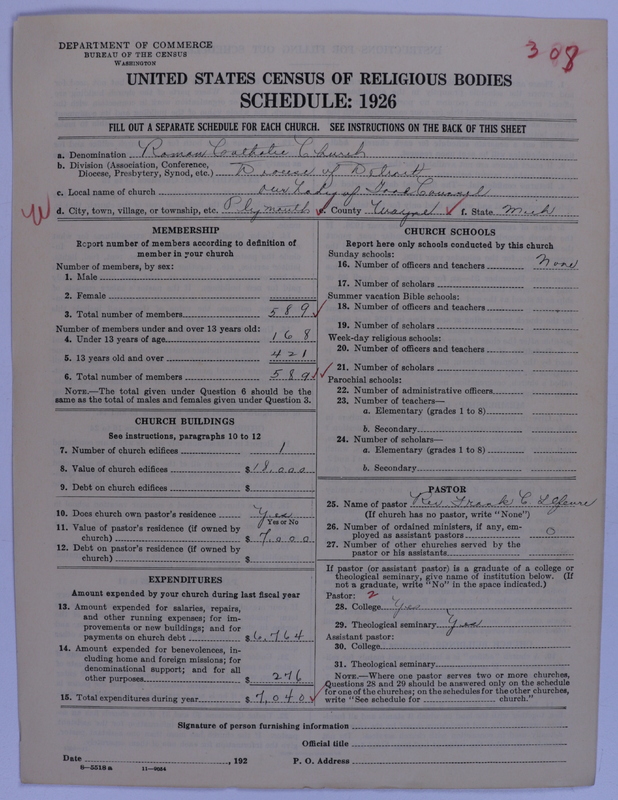 DEPARTMENT OF COMMERCE
BUREAU OF THE CENSUS
WASHINGTON
308
UNITED STATES CENSUS OF RELIGIOUS BODIES
SCHEDULE: 1926
FILL OUT A SEPARATE SCHEDULE FOR EACH CHURCH. SEE INSTRUCTIONS ON THE BACK OF THIS SHEET
a. Denomination Roman Catholic Church
b. Division (Association, Conference, Diocese, Presbytery, Synod, etc.) Diocese of Detroit
c. Local name of church Our Lady of Good Counsel
W d. City, town, village, or township, etc. Plymouth e. County Wayne f. State Mich
MEMBERSHIP
Report number of members according to definition of
member in your church
Number of members, by sex:
1. Male
2. Female
3. Total number of members 589
Number of members under and over 13 years old:
4. Under 13 years of age 168
5. 13 years old and over 421
6. Total number of members 589
NOTE.—The total given under Question 6 should be the
same as the total of males and females given under Question 3.
CHURCH BUILDINGS
See instructions, paragraphs 10 to 12
7. Number of church edifices 1
8. Value of church edifices $18,000
9. Debt on church edifices $
10. Does church own pastor's residence Yes
Yes or No
11. Value of pastor's residence (if owned by
church) $7,000
12. Debt on pastor's residence (if owned by
church) $
EXPENDITURES
Amount expended by your church during last fiscal year
13. Amount expended for salaries, repairs,
and other running expenses; for im-
provements or new buildings; and for
payments on church debt $6,764
14. Amount expended for benevolences, in-
cluding home and foreign missions; for
denominational support; and for all
other purposes $276
15. Total expenditures during year $7,040
CHURCH SCHOOLS
Report here only schools conducted by this church
Sunday schools:
16. Number of officers and teachers None
17. Number of scholars
Summer vacation Bible schools:
18. Number of officers and teachers
19. Number of scholars
Week-day religious schools:
20. Number of officers and teachers
21. Number of scholars
Parochial schools:
22. Number of administrative officers
23. Number of teachers—
a. Elementary (grades 1 to 8)
b. Secondary
24. Number of scholars—
a. Elementary (grades 1 to 8)
b. Secondary
PASTOR
25. Name of pastor Rev. Frank C Lefevre
(If church has no pastor, write "None")
26. Number of ordained ministers, if any, em-
ployed as assistant pastors 0
27. Number of other churches served by the
pastor or his assistants
If pastor (or assistant pastor) is a graduate of a college or
theological seminary, give name of institution below. (If
not a graduate, write "No" in the space indicated.)
Pastor: 2
28. College Yes
29. Theological seminary Yes
Assistant pastor:
30. College
31. Theological seminary
NOTE.—Where one pastor serves two or more churches,
Questions 28 and 29 should be answered only on the schedule
for one of the churches; on the schedules for the other churches,
write "See schedule for church."
Signature of person furnishing information
Official title
Date , 192 P. O. Address
8—5518a 11—9084